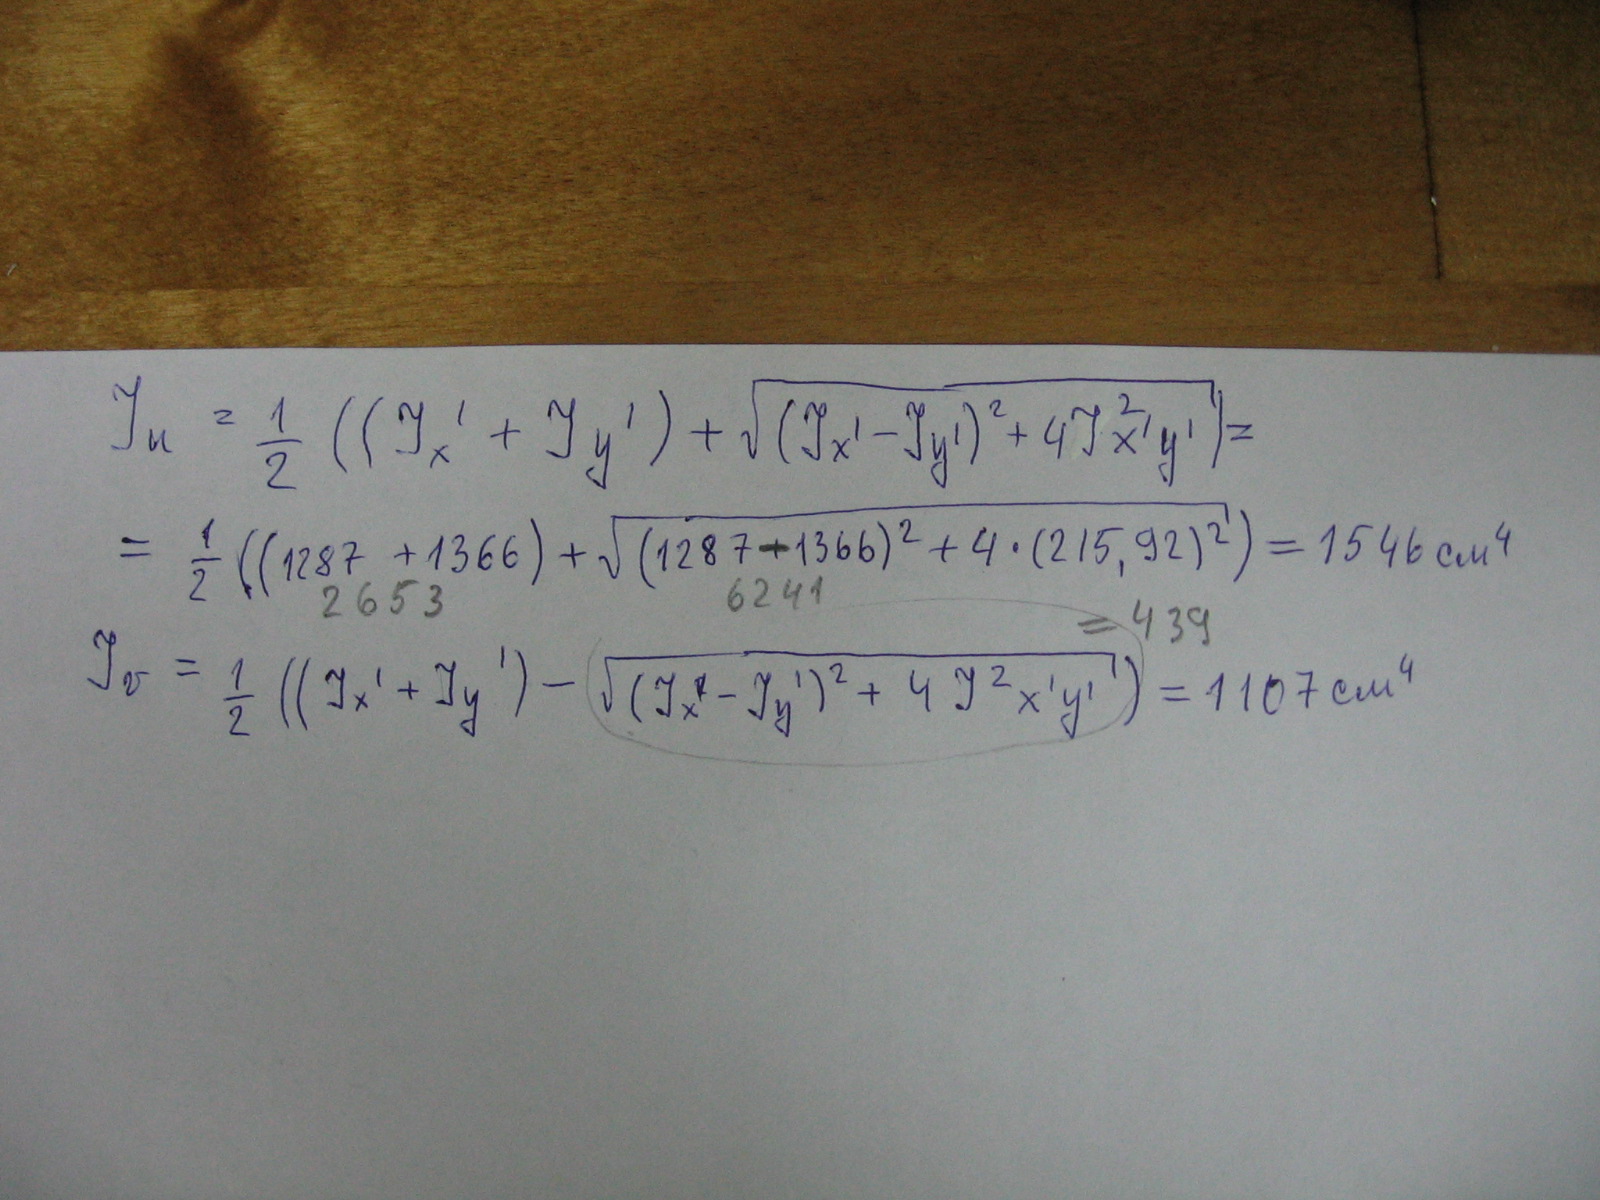 J_u = 1/2 ((J_x' + J_y') + √((J_x' − J_y')² + 4J²x'y')) =
= 1/2 ((1287 + 1366) + √((1287 − 1366)² + 4·(215,92)²)) = 1546 см⁴
2653 6241
= 439
J_v = 1/2 ((J_x' + J_y') − √((J_x' − J_y')² + 4J²x'y')) = 1107 см⁴